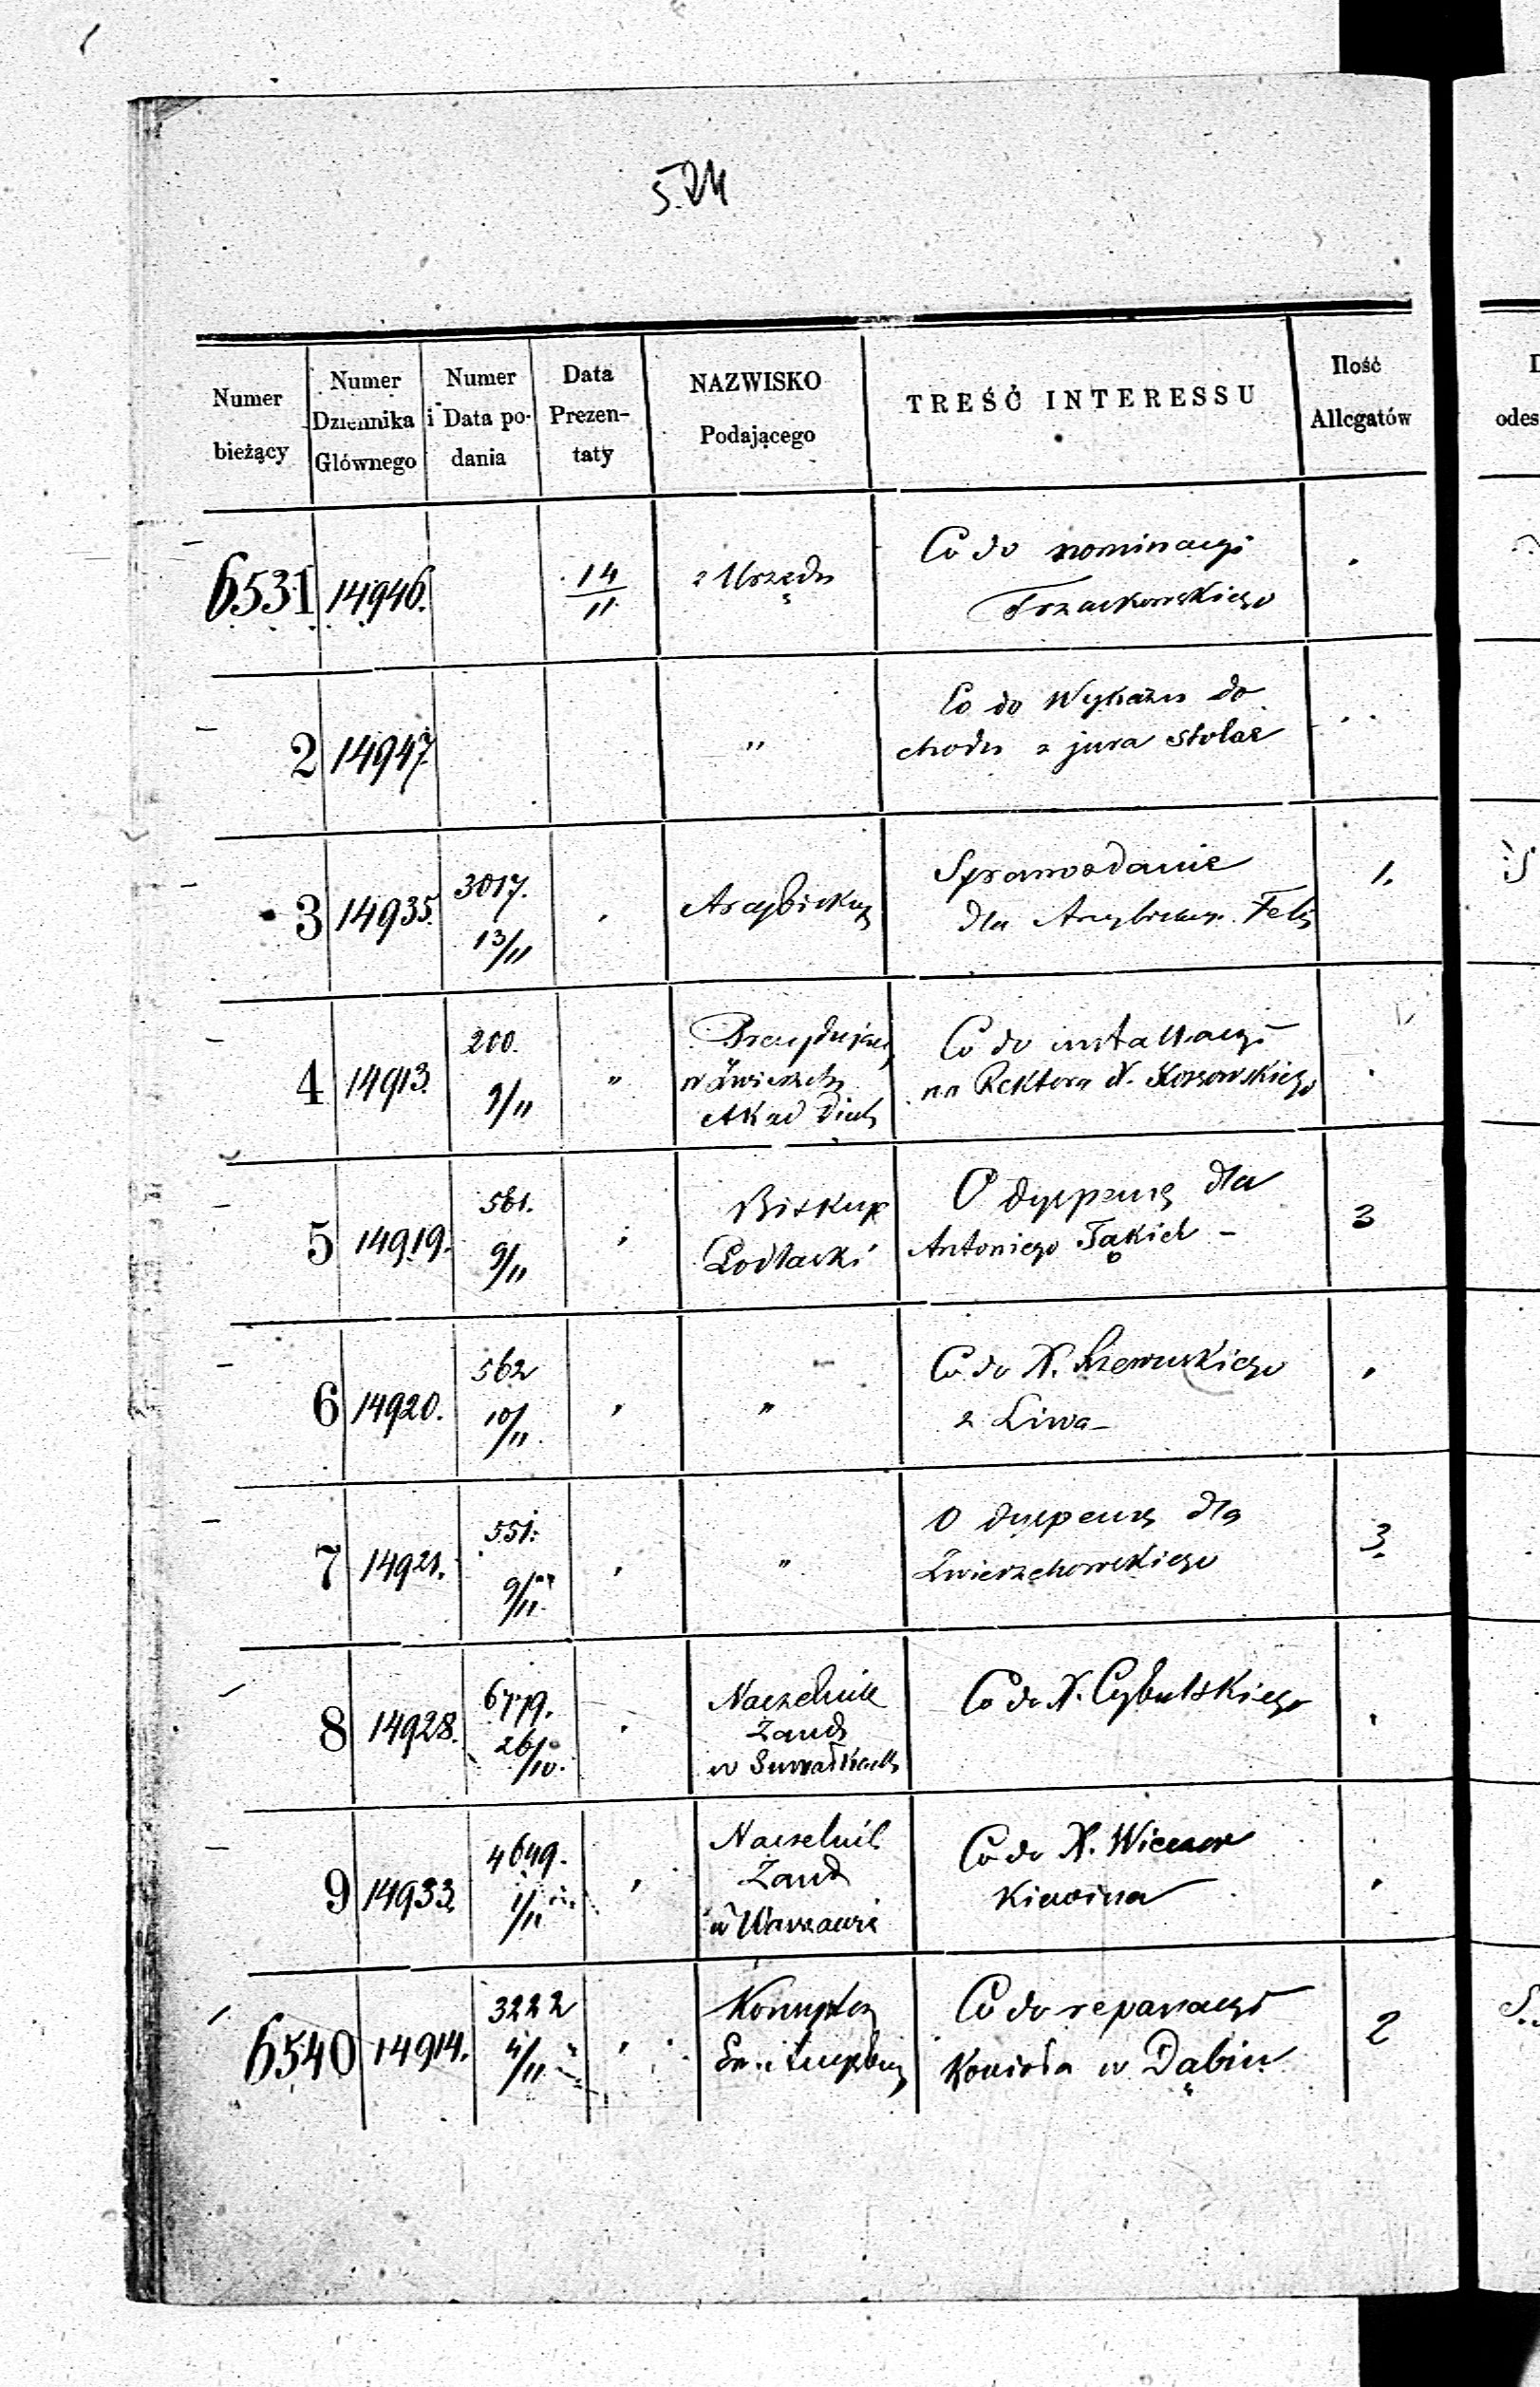 524
Numer bieżący
Numer Dziennika Głównego
Numer i Data podania
Data Prezentaty
NAZWISKO Podającego
TREŚĆ INTERESSU
Ilość Allegatów
6531 14946. 14/11 z Urzędu Co do nominacyi
Trzaskowskiego
2 14947 " Co do Wykazu do
chodu z jura stolae
3 14935. 3017. 13/11 Arcybiskup Sprawozdanie 1.
dla Arcybiskup.
4 14913. 200. 9/11 "
w Zwierzch.
Akad Duch
Co do installacyi
na Rektora X.
5 14919. 561. 9/11 Biskup
Podlaski
O dyspensę dla
Antoniego 3
6 14920. 562 10/11 " Co do X.
z Liwa
7 14921. 551. 9/11 " O dyspensę dla
Zwierzchowskiego 3.
8 14928. 6779. 26/10. Naczelnik
Żand
w Suwałkach
Co do X. Cybulskiego
9 14933. 4649. 1/11 Naczelnik
Żand
w Warszawie
Co do X.
6540 14914. 3222 4/11
Co do reparacyi
Kościoła w Dąbiu 2